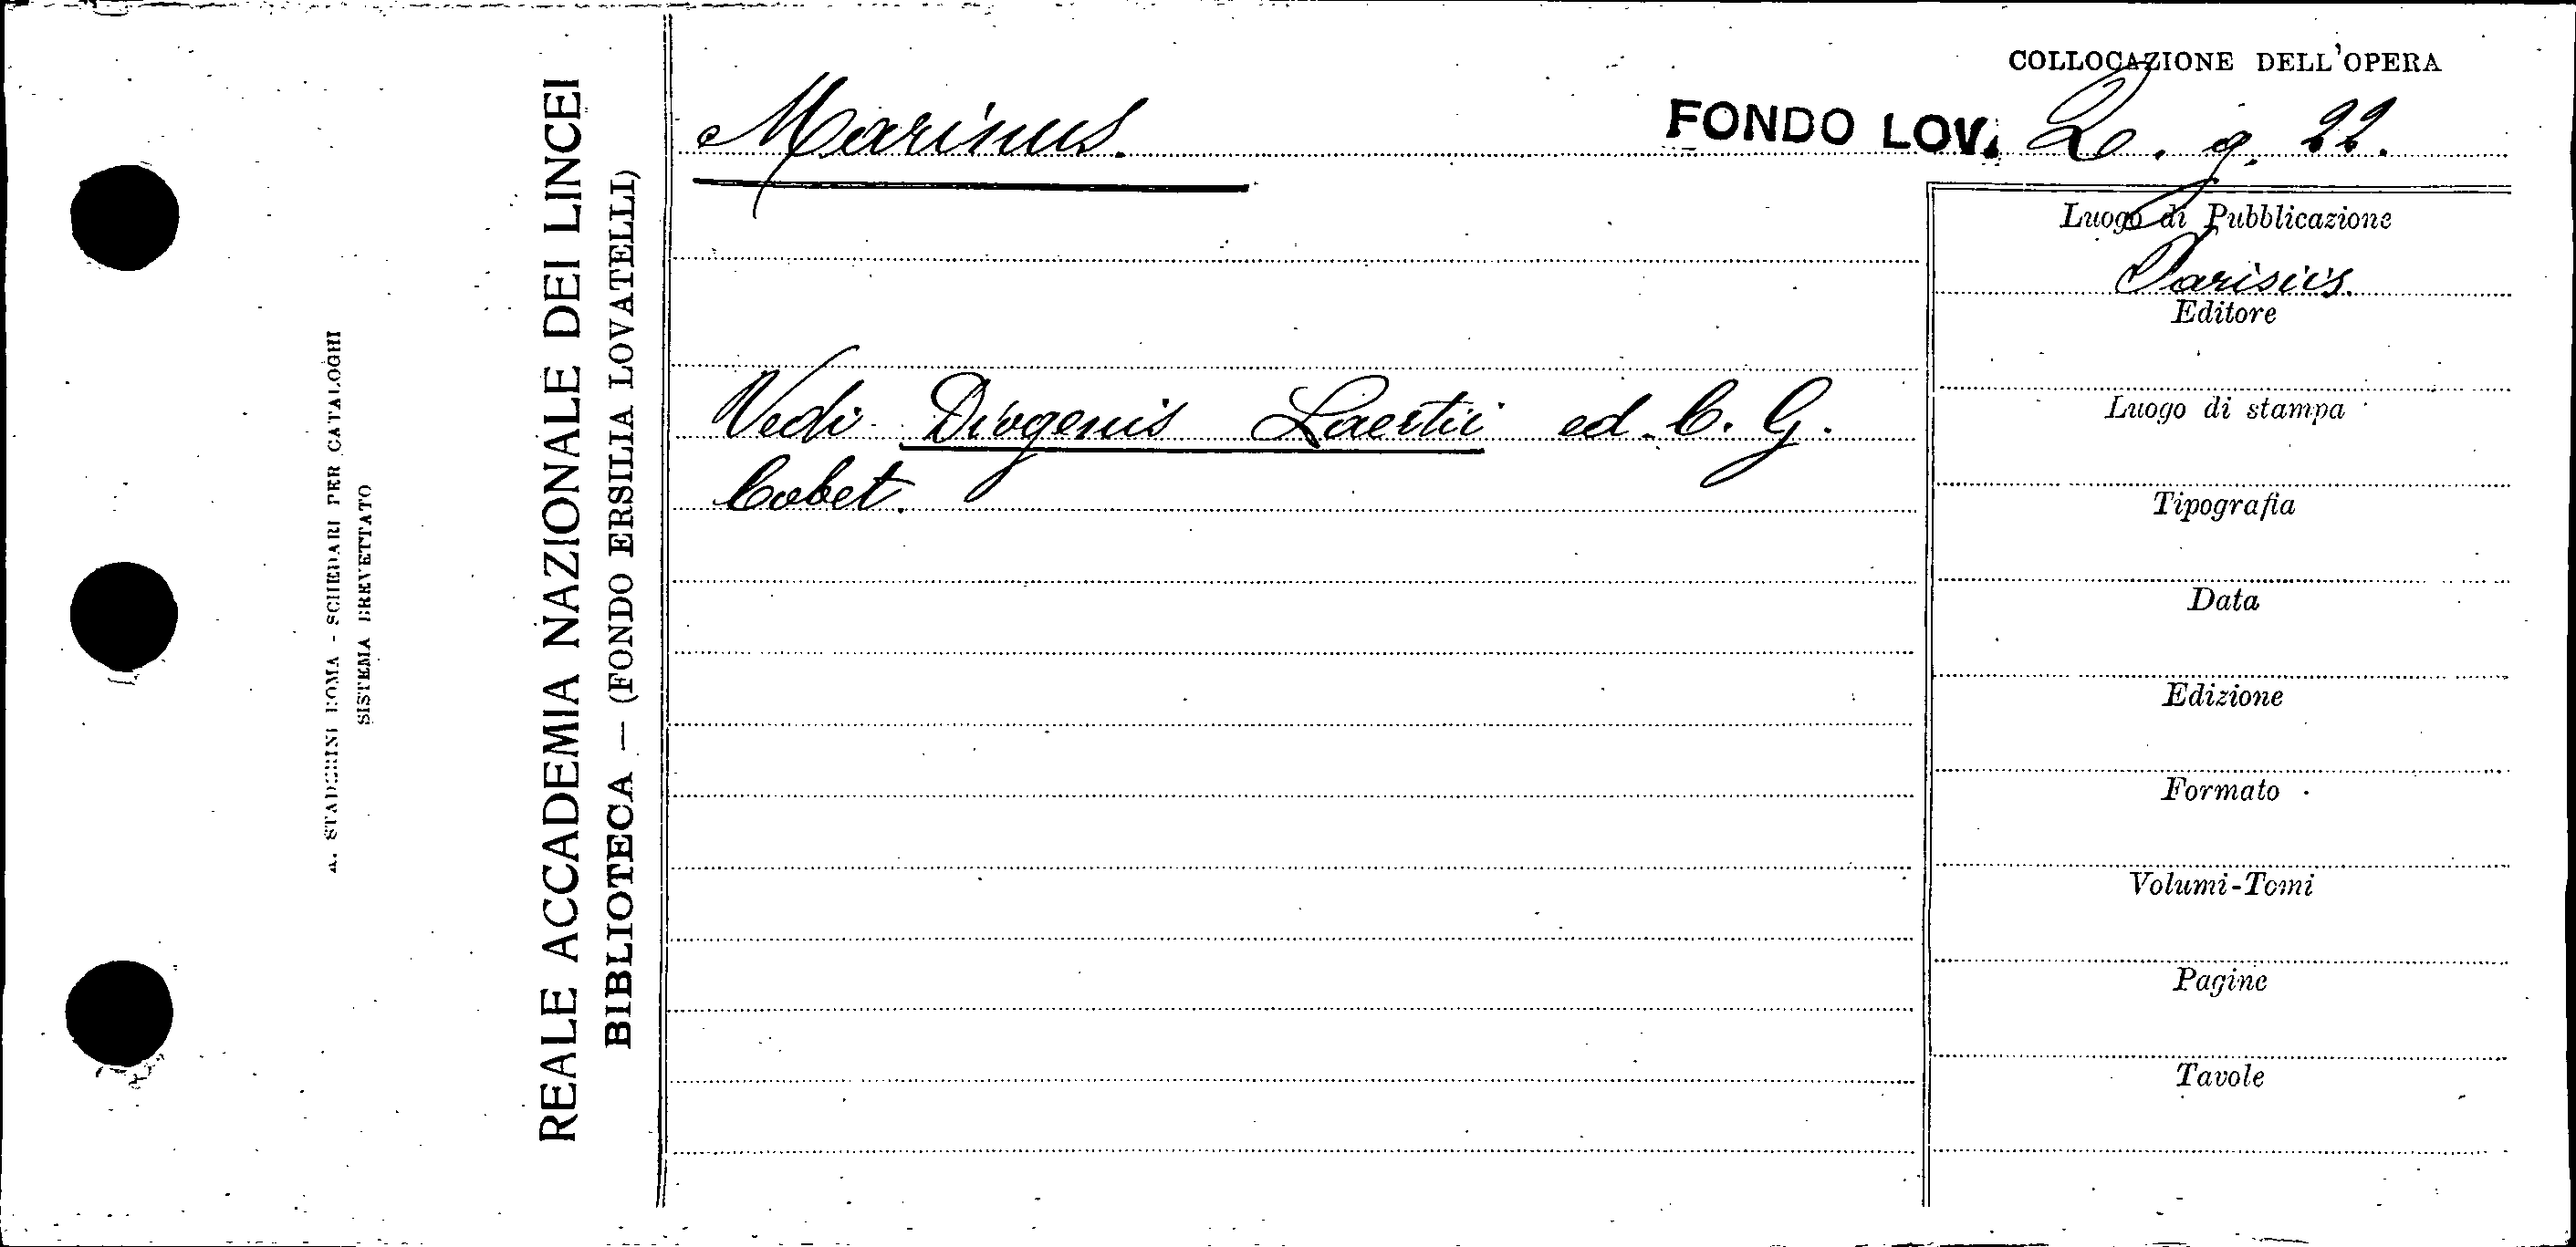 A. STADERINI ROMA - SCHEDARI PER CATALOGHI
SISTEMA BREVETTATO
REALE ACCADEMIA NAZIONALE DEI LINCEI
BIBLIOTECA — (FONDO ERSILIA LOVATELLI)
COLLOCAZIONE DELL'OPERA
Marinus. FONDO LOV. 2. g. 22.
Luogo di Pubblicazione
Parisiis.
Editore
Vedi Diogenis Laertii ed. C. G.
Cobet.
Luogo di stampa
Tipografia
Data
Edizione
Formato
Volumi-Tomi
Pagine
Tavole